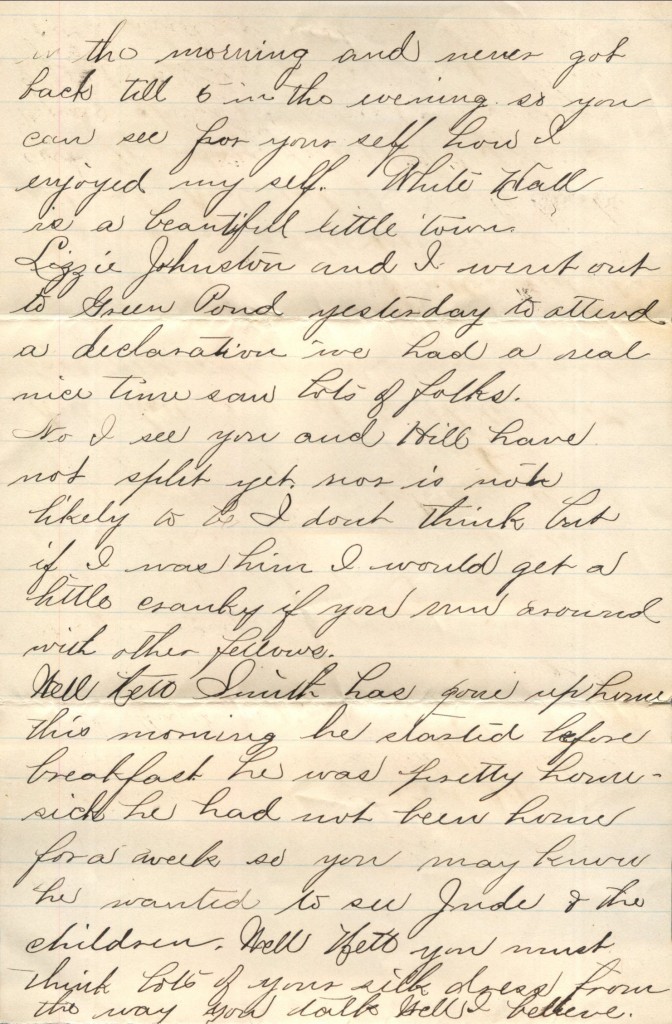 in the morning and never got
back till 5 in the evening so you
can see for your self how I
enjoyed my self. White Hall
is a beautiful little town.
Lizzie Johnston and I went out
to Green Pond yesterday to attend
a declaration we had a real
nice time saw lots of folks.
No I see you and Will have
not split yet. nor is not
likely to be I dont think but
if I was him I would get a
little cranky if you run around
with other fellows.
Well Hett Smith has gone up home
this morning he started before
breakfast he was pretty home-
sick he had not been home
for a week so you may know
he wanted to see Jude & the
children. Well Hett you must
think lots of your silk dress from
the way you talk Well I believe.